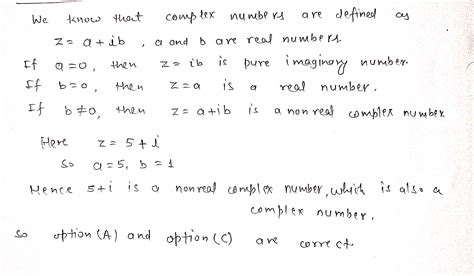 We know that complex numbers are defined as
z = a + ib , a and b are real numbers.
If a=0, then z = ib is pure imaginary number.
If b=0, then z=a is a real number.
If b≠0, then z=a+ib is a nonreal complex number
Here z = 5+i
So a=5, b=1
Hence 5+i is a nonreal complex number, which is also a
complex number.
So option (A) and option (C) are correct.